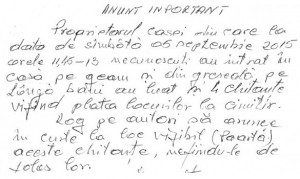 ANUNT IMPORTANT
Proprietarul casei din care la
data de sîmbătă 05 septembrie 2015
orele 11,45-13 necunoscuti au intrat în
casă pe geam si din greseală, pe
lîngă bani au luat si 4 chitante
vizînd plata locurilor la cimitir.
Rog pe autori să arunce
în curte la loc vizibil (Poartă)
aceste chitante, nefiindu-le de
folos lor.